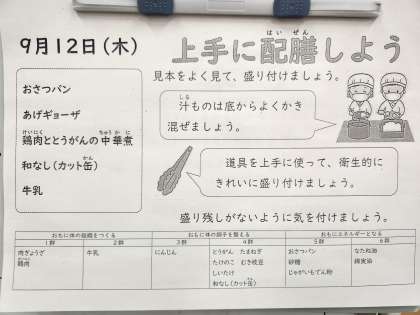 9月12日(木)
上手に配膳しよう
はいぜん
見本をよく見て、盛り付けましょう。
おさつパン
あげギョーザ
鶏肉ととうがんの中華煮
けいにく
ちゅうかに
和なし(カット缶)
かん
牛乳
汁ものは底からよくかき
しる
混ぜましょう。
道具を上手に使って、衛生的に
きれいに盛り付けましょう。
盛り残しがないように気を付けましょう。
おもに体の組織をつくる
おもに体の調子を整える
おもにエネルギーとなる
1群 2群 3群 4群 5群 6群
肉ぎょうざ 牛乳 にんじん とうがん たまねぎ おさつパン なたね油
鶏肉 たけのこ むき枝豆 砂糖 綿実油
しいたけ じゃがいもでん粉
和なし(カット缶)